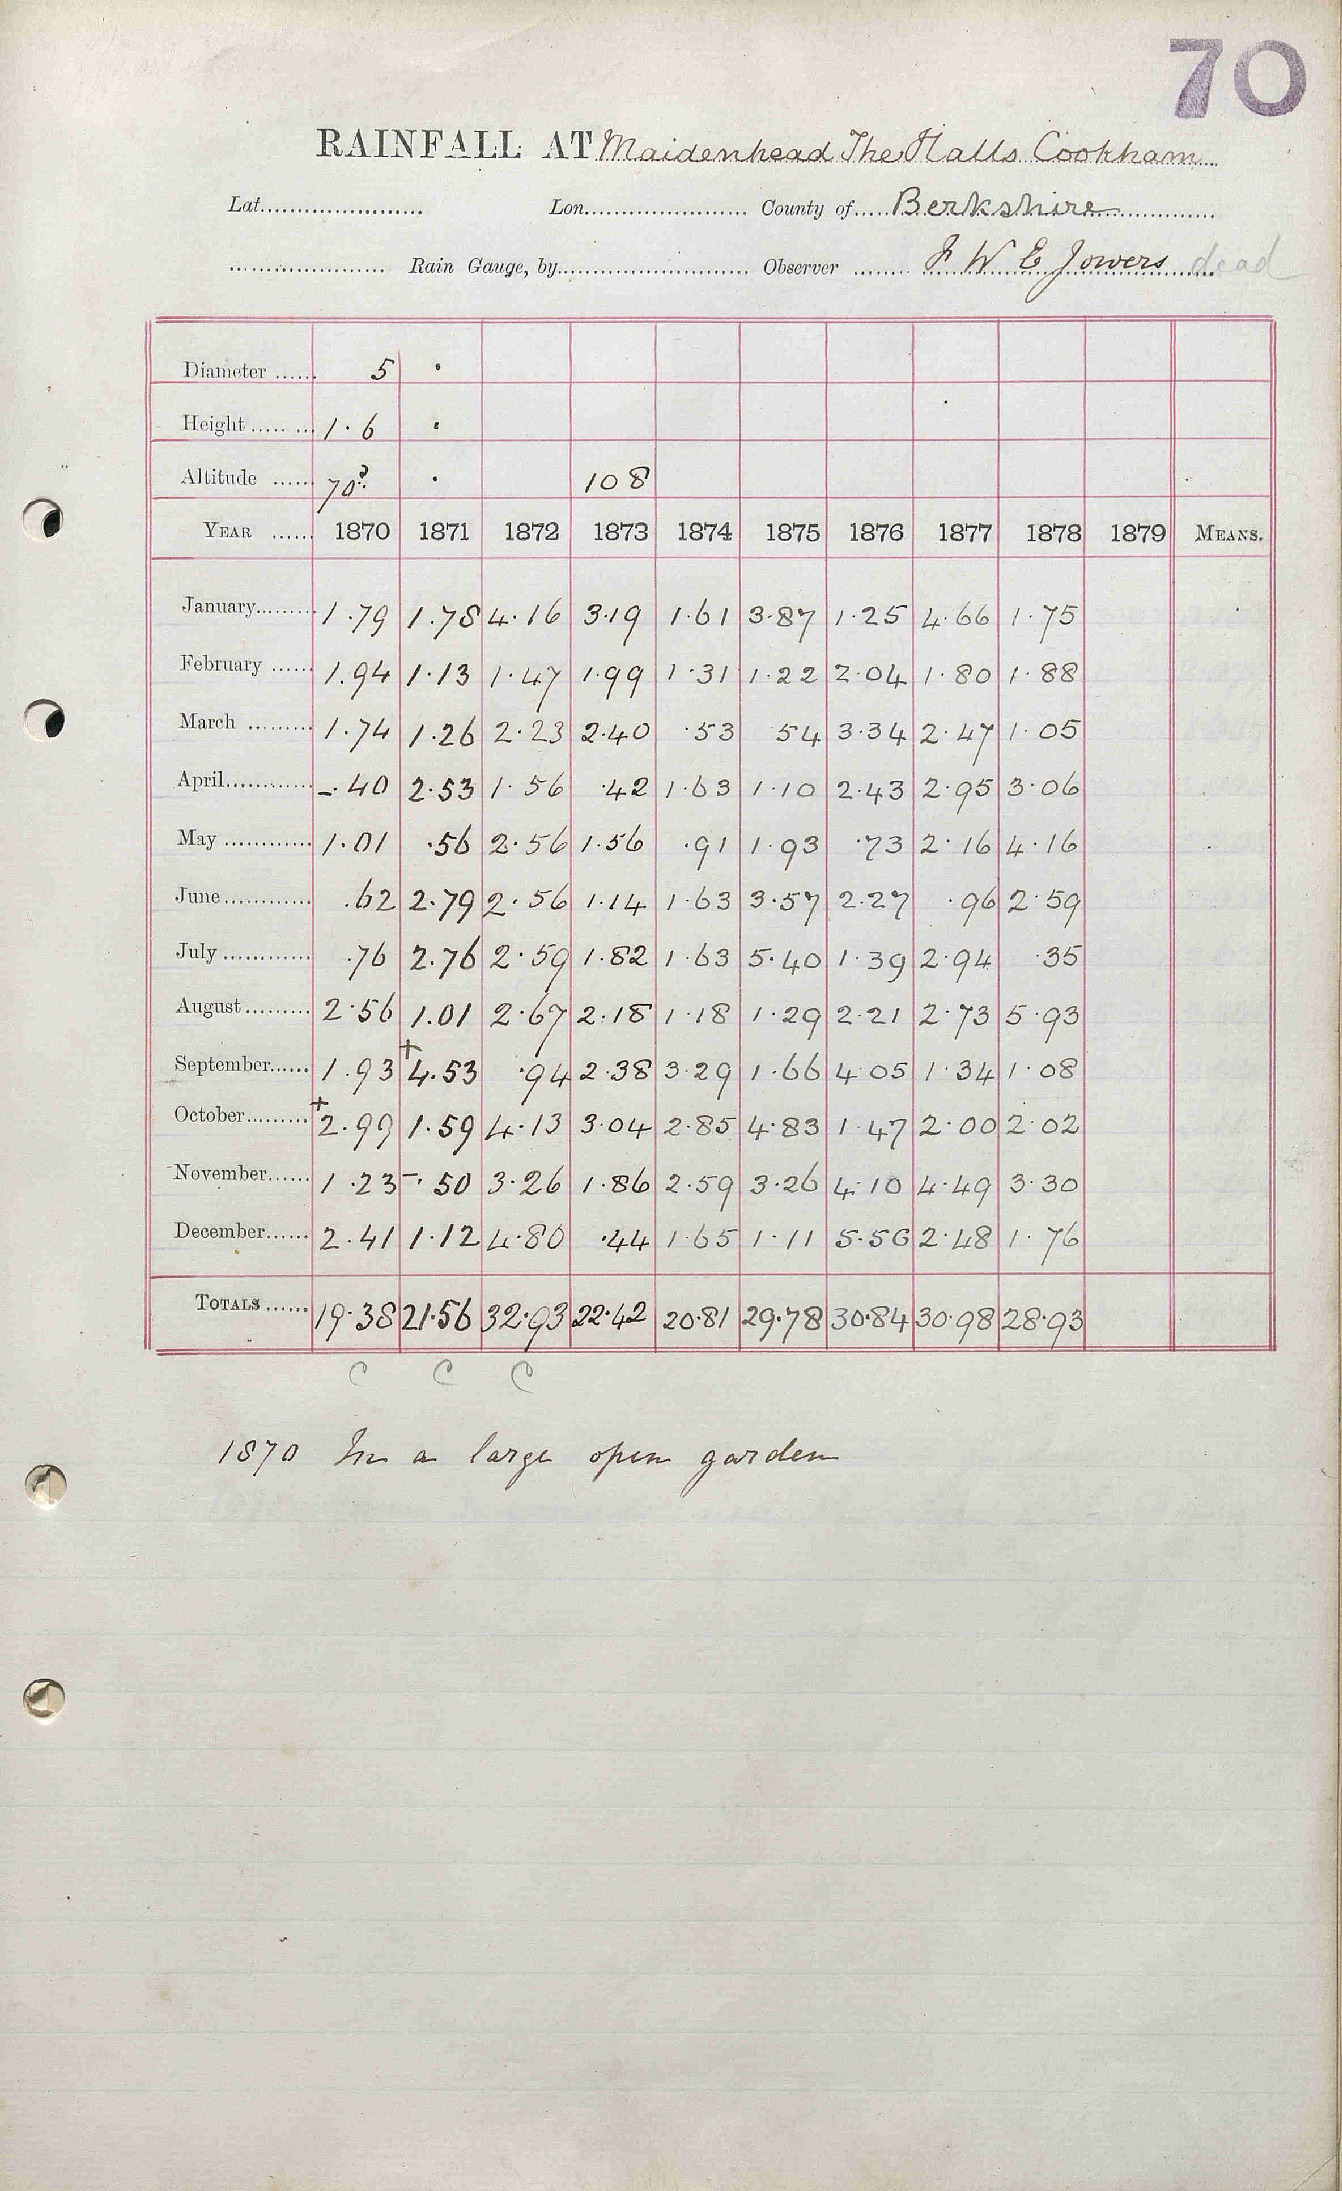 70
RAINFALL AT Maidenhead The Halls Cookham
Lat. Lon. County of Berkshire
Rain Gauge, by Observer F W E Jowers dead
Diameter 5 ·
Height 1·6 ·
Altitude 70? · 108
YEAR 1870 1871 1872 1873 1874 1875 1876 1877 1878 1879 MEANS.
January 1·79 1·78 4·16 3·19 1·61 3·87 1·25 4·66 1·75
February 1·94 1·13 1·47 1·99 1·31 1·22 2·04 1·80 1·88
March 1·74 1·26 2·23 2·40 ·53 54 3·34 2·47 1·05
April –·40 2·53 1·56 ·42 1·63 1·10 2·43 2·95 3·06
May 1·01 ·56 2·56 1·56 ·91 1·93 ·73 2·16 4·16
June ·62 2·79 2·56 1·14 1·63 3·57 2·27 ·96 2·59
July ·76 2·76 2·59 1·82 1·63 5·40 1·39 2·94 ·35
August 2·56 1·01 2·67 2·18 1·18 1·29 2·21 2·73 5·93
September 1·93 +4·53 ·94 2·38 3·29 1·66 4·05 1·34 1·08
October +2·99 1·59 4·13 3·04 2·85 4·83 1·47 2·00 2·02
November 1·23 –·50 3·26 1·86 2·59 3·26 4·10 4·49 3·30
December 2·41 1·12 4·80 ·44 1·65 1·11 5·56 2·48 1·76
TOTALS 19·38 21·56 32·93 22·42 20·81 29·78 30·84 30·98 28·93
C C C
1870 In a large open garden